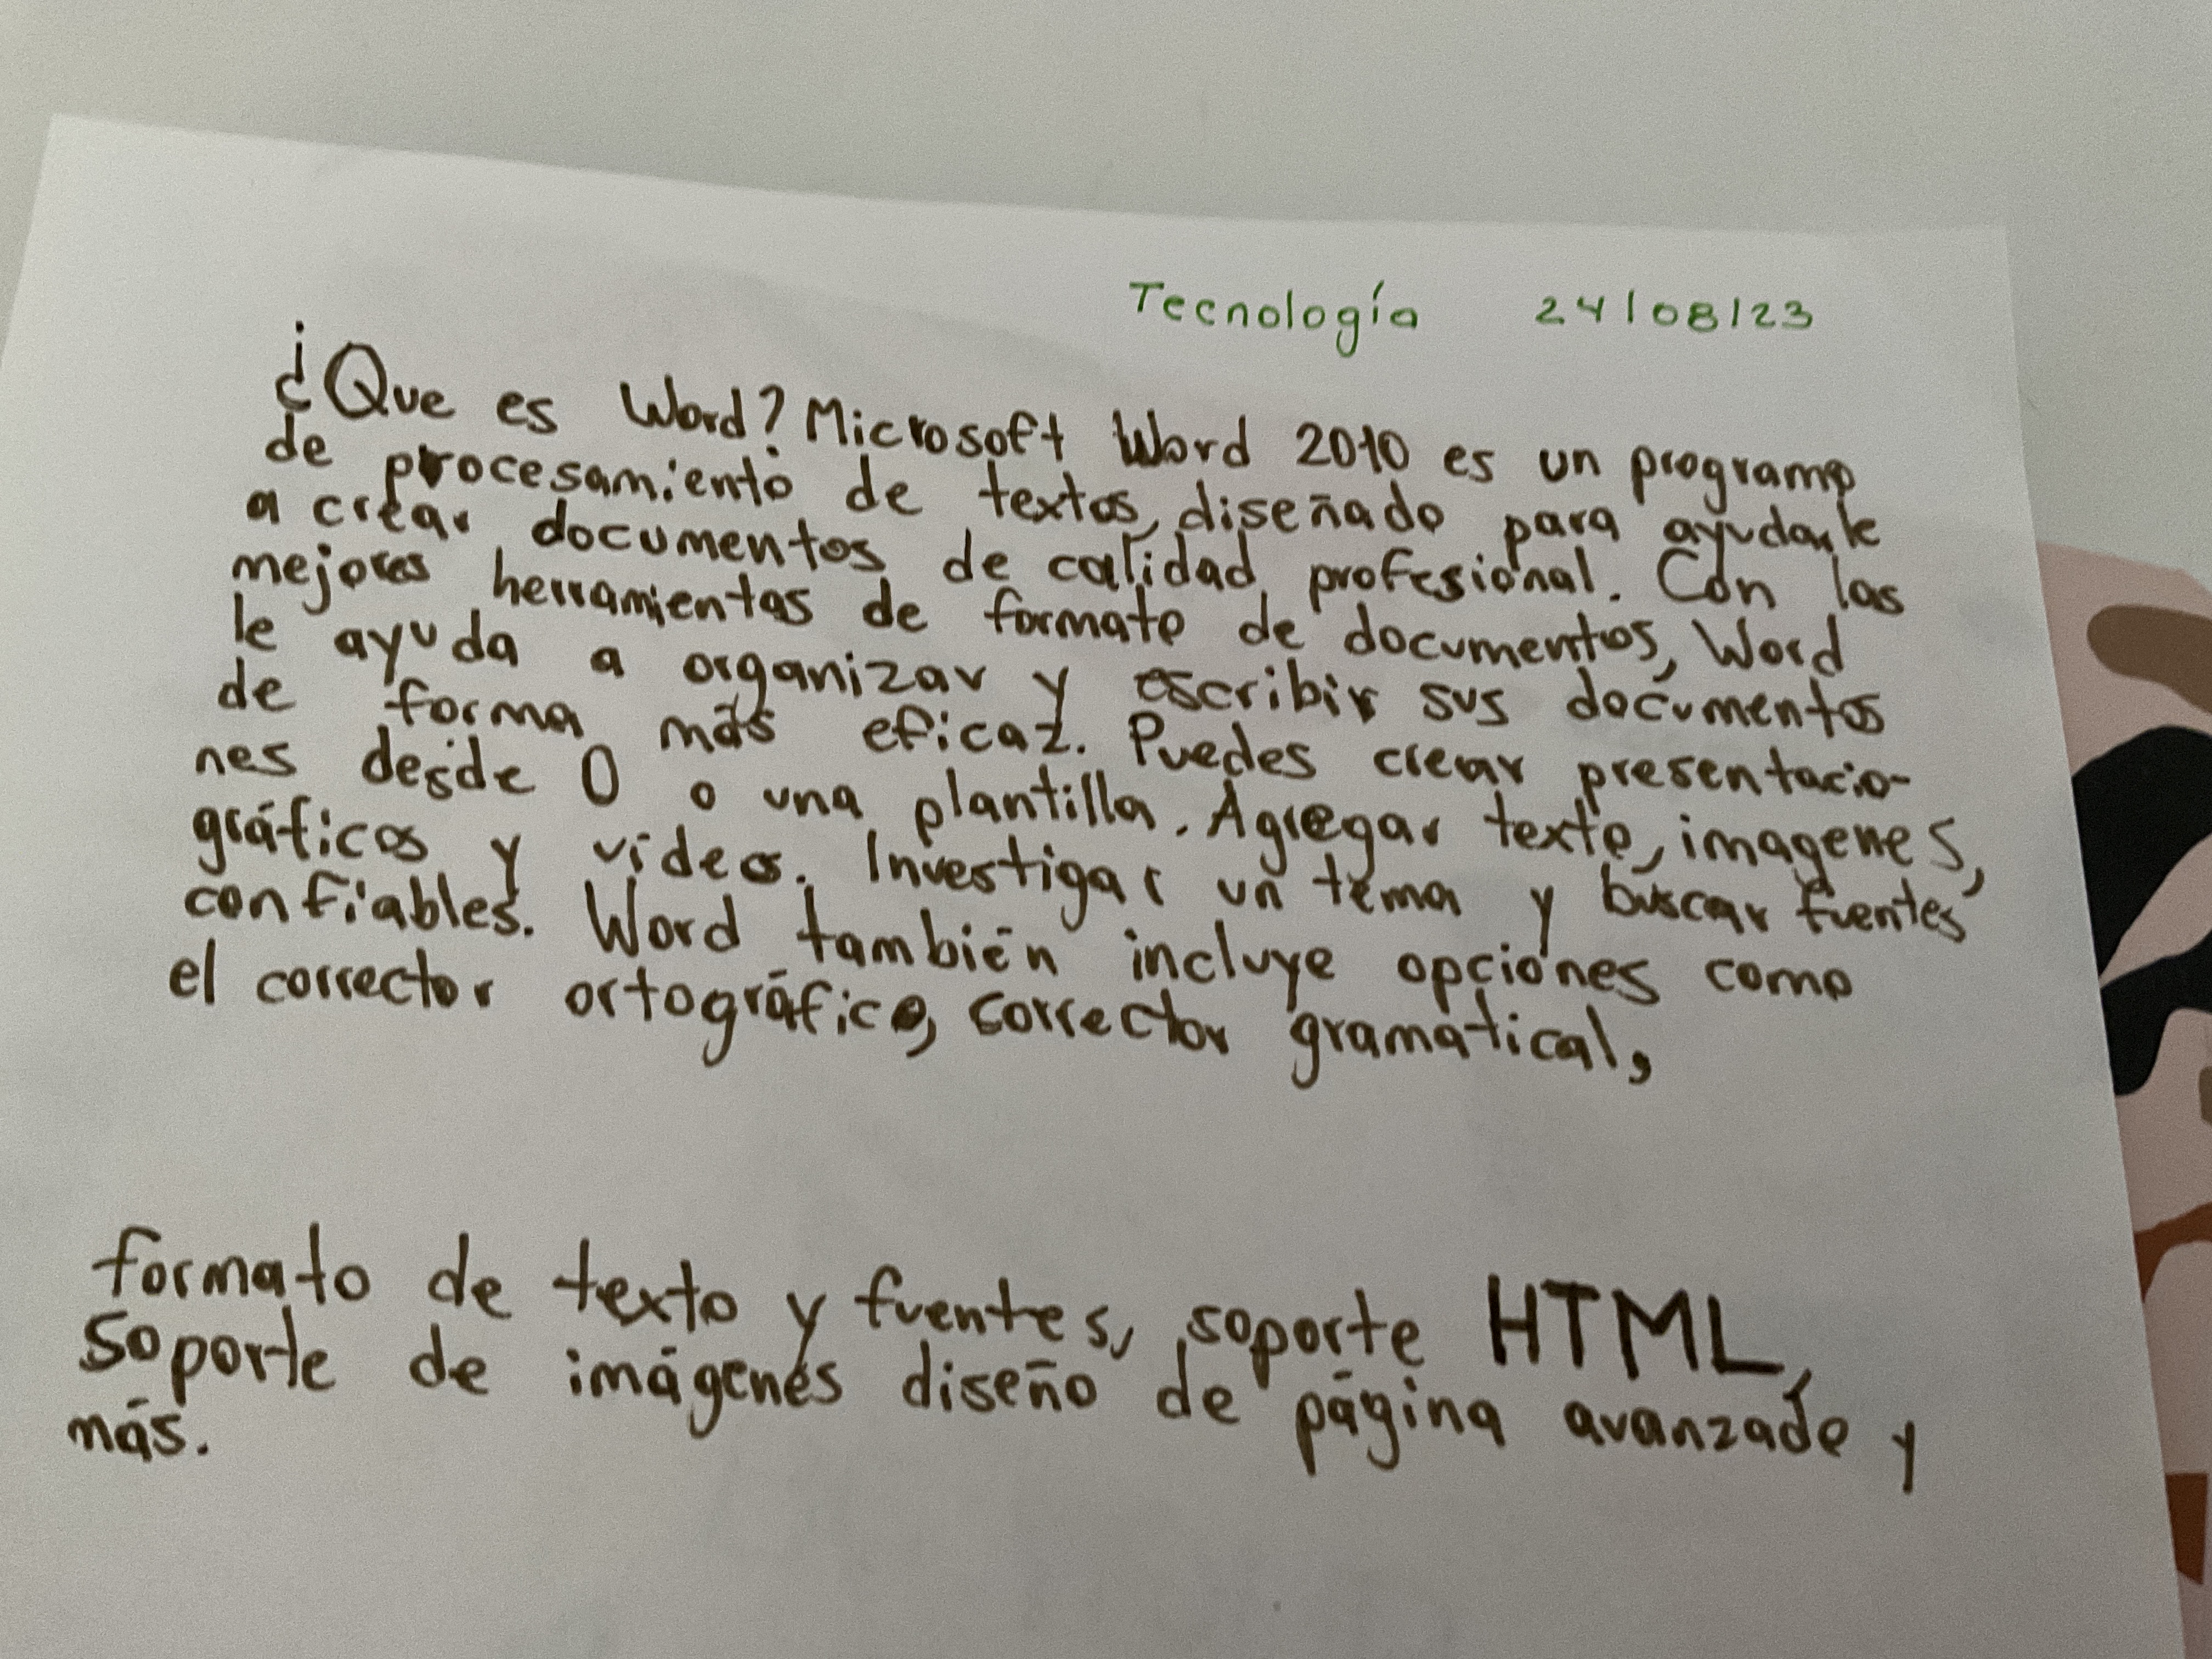 Tecnología 24/08/23
¿Que es Word? Microsoft Word 2010 es un programa
de procesamiento de textos, diseñado para ayudarle
a crear documentos de calidad profesional. Con las
mejores herramientas de formato de documentos, Word
le ayuda a organizar y escribir sus documentos
de forma más eficaz. Puedes crear presentacio-
nes desde 0 o una plantilla. Agregar texto, imagenes,
gráficos y videos. Investigar un tema y buscar fuentes
confiables. Word también incluye opciones como
el corrector ortográfico, corrector gramatical,
formato de texto y fuentes, soporte HTML,
soporte de imágenes diseño de página avanzado y
más.